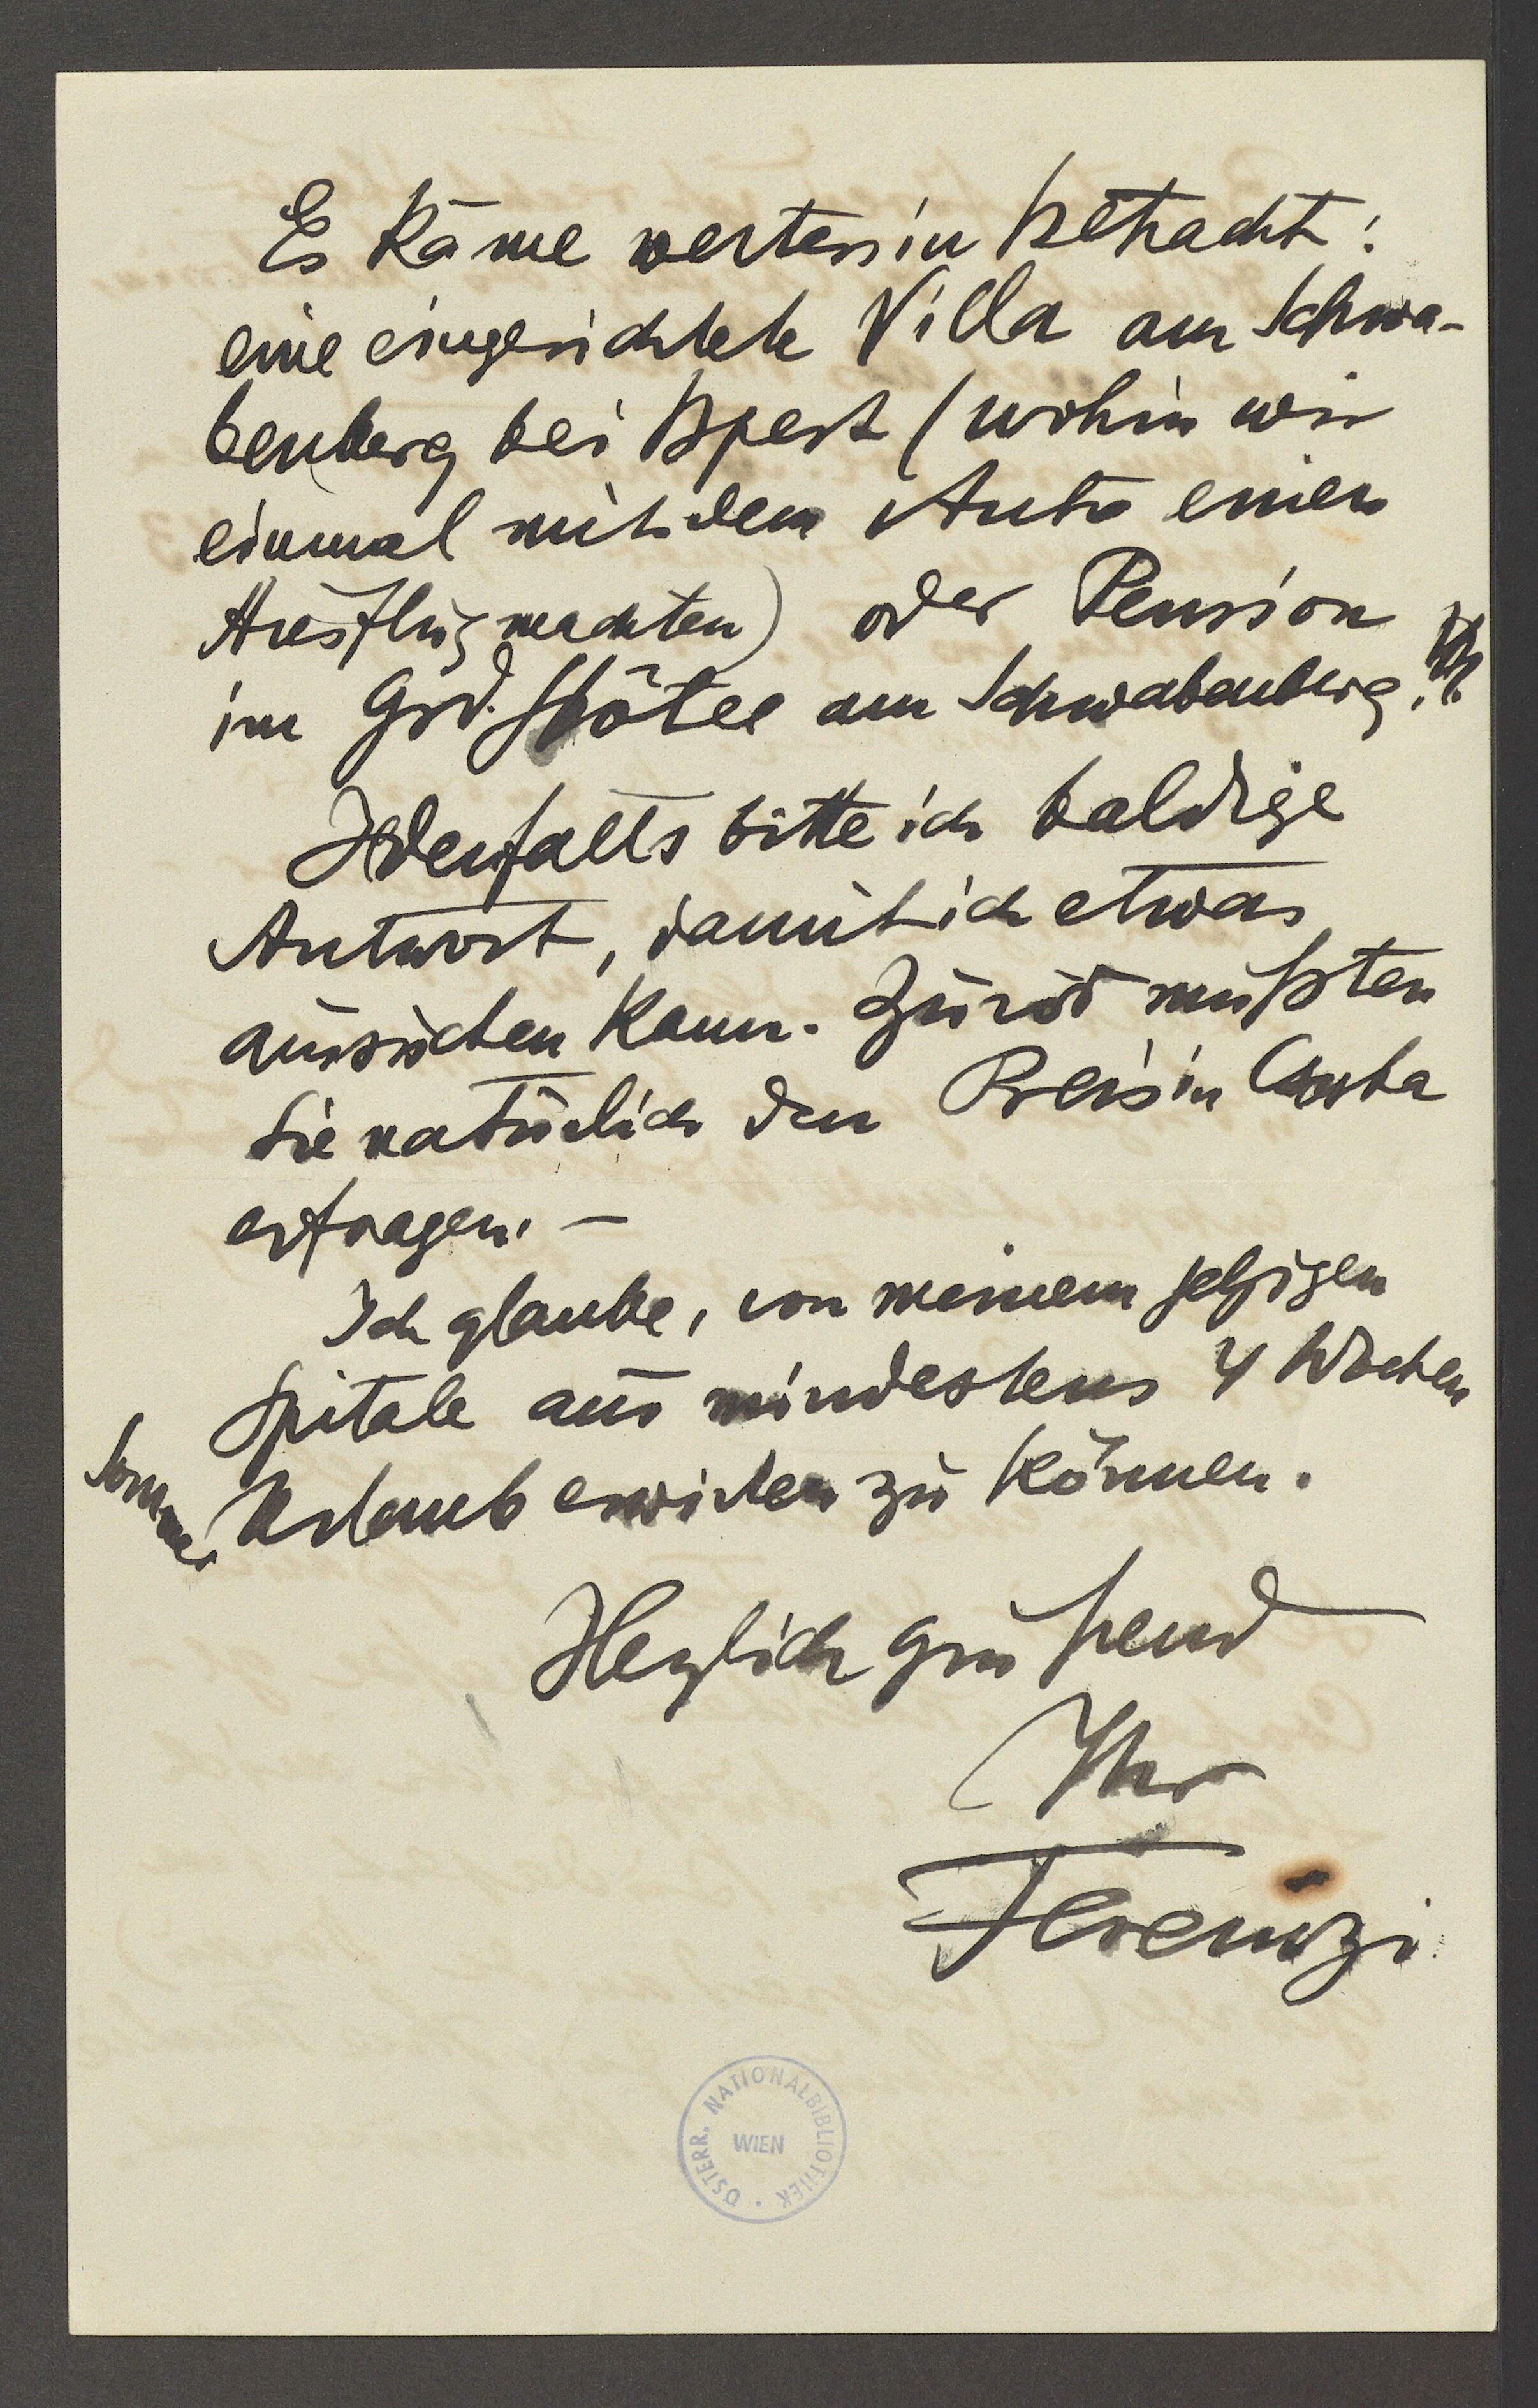 Es käme weiters in Betracht:
eine eingerichtete Villa am Schwa-
benberg bei Bpest (wohin wir
einmal mit dem Auto einen
Ausflug machten) oder Pension
im Grd. Hôtel am Schwabenberg.
Jedenfalls bitte ich baldige
Antwort, damit ich etwas
aussuchen kann. Zuvor müßten
Sie natürlich den Preis in Csorba
erfragen. —
Ich glaube, von meinem jetzigen
Spitale aus mindestens 4 Wochen
Sommer Urlaub erwirken zu können.
Herzlich grüßend
Ihr
Ferenczi
ÖSTERR. NATIONALBIBLIOTHEK
WIEN